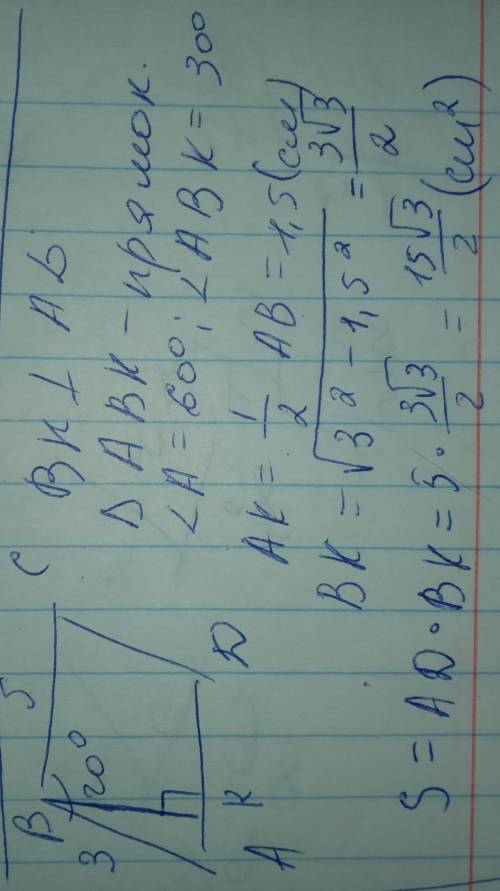 B 5 C
3 120°
A K D
BK ⊥ AD
Δ ABK - прямок.
∠A = 60°; ∠ABK = 30°
AK = 1/2 AB = 1,5 (см)
BK = √3² - 1,5² = 3√3/2
S = AD · BK = 5 · 3√3/2 = 15√3/2 (см²)